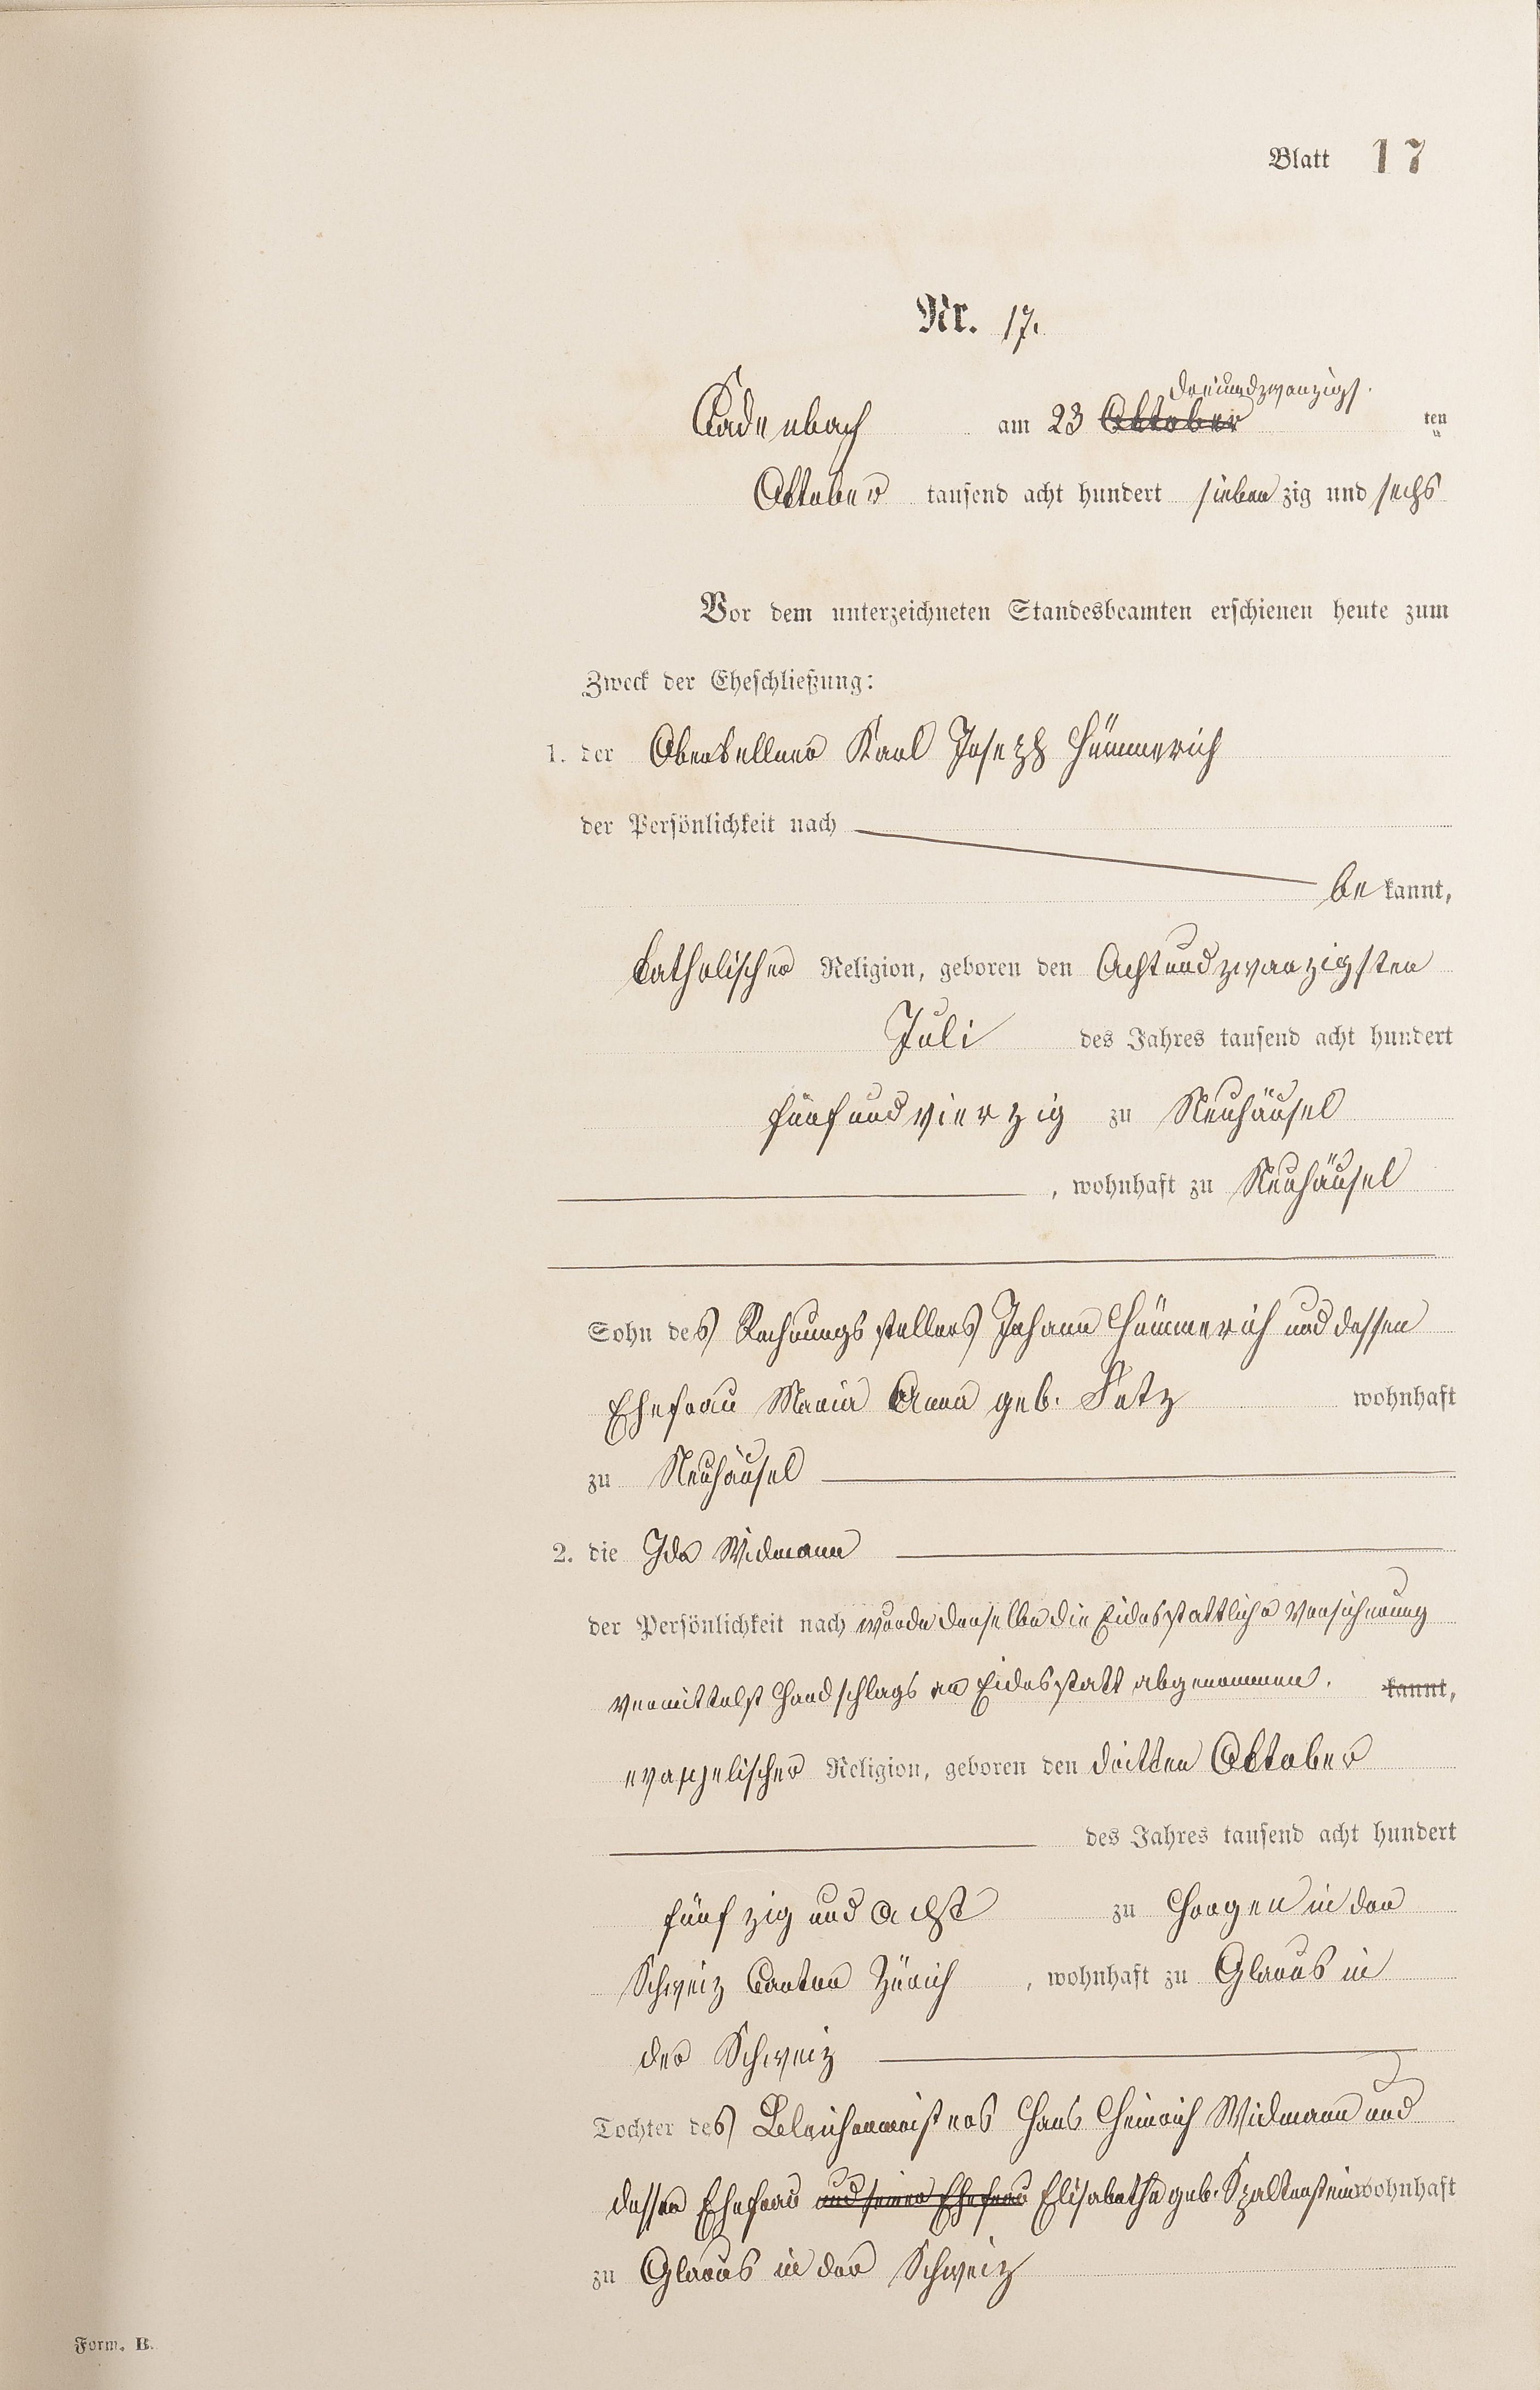 Blatt 17
Nr. 17.
dreiundzwanzigs.
Cadenbach am 23 Oktober ten
Oktober tausend acht hundert siebenzig und sechs
Vor dem unterzeichneten Standesbeamten erschienen heute zum
Zweck der Eheschließung:
1. der Oberkellner Karl Joseph Hümmerich
der Persönlichkeit nach
be kannt,
katholischer Religion, geboren den Achtundzwanzigsten
Juli des Jahres tausend acht hundert
fünfundvierzig zu Neuhäusel
, wohnhaft zu Neuhäusel
Sohn des Rechnungsstellers Johann Hümmerich und dessen
Ehefrau Maria Anna geb. wohnhaft
zu Neuhäusel
2. die Ida Widmann
der Persönlichkeit nach wurde derselben die Eidesstattliche Versicherung
vermittelst Handschlags an Eidesstatt abgenommen. kannt,
evangelischer Religion, geboren den dritten Oktober
des Jahres tausend acht hundert
fünfzig und acht zu Horgen in der
Schweiz Canton Zürich , wohnhaft zu Glarus in
der Schweiz
Tochter des Bleichermeisters Hans Heinrich Widmann und
dessen Ehefrau und seiner Ehefrau Elisabetha geb. Spaltenstein wohnhaft
zu Glarus in der Schweiz
Form. B.